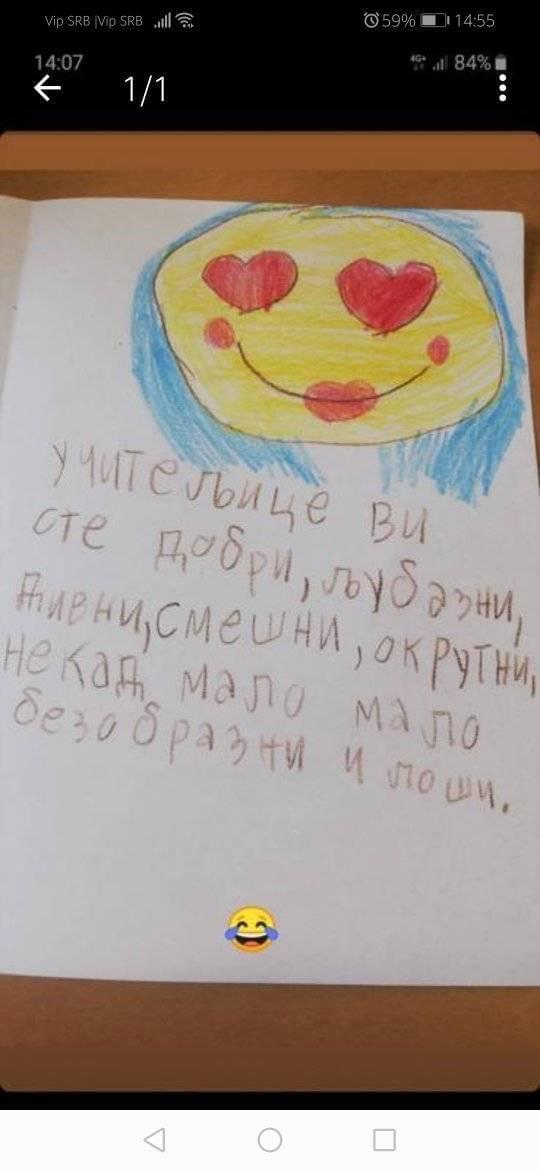 Vip SRB |Vip SRB 59% 14:55
14:07 4G+ 84%
1/1
учитељице ви
сте добри, љубазни,
дивни, смешни, окрутни,
некад мало мало
безобразни и лоши.